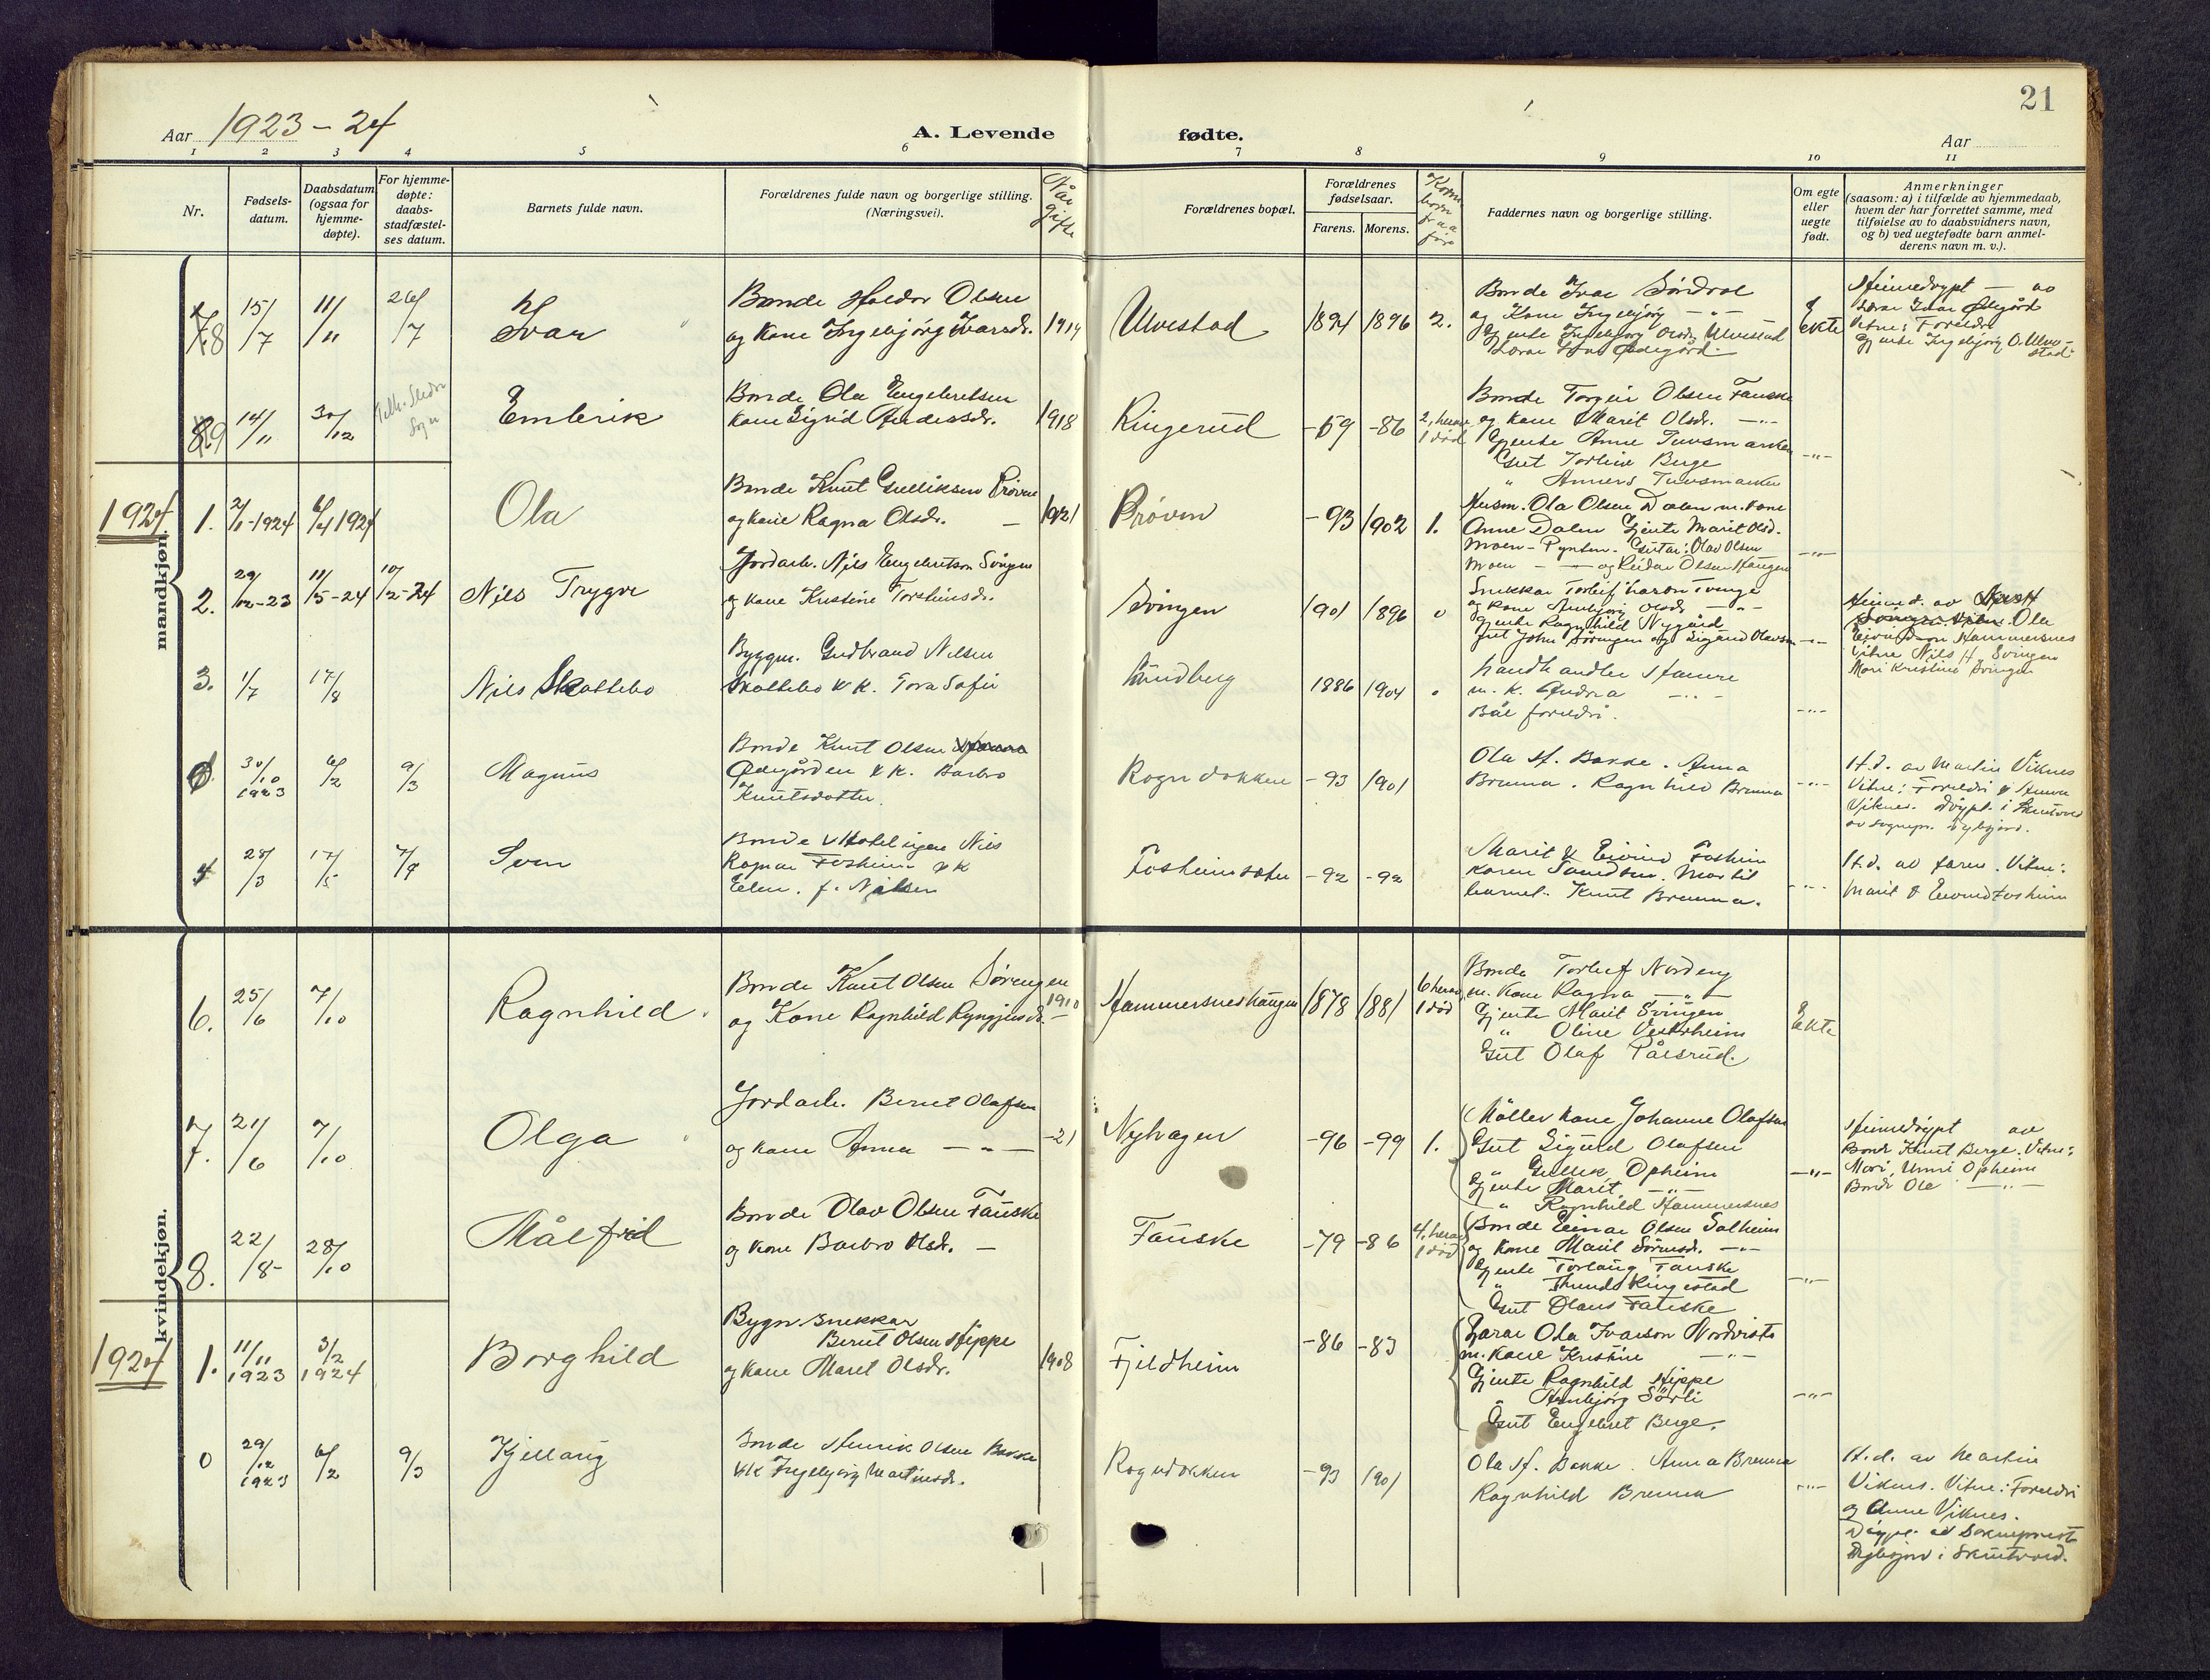 21
Aar 1923-24
A. Levende
fødte.
Aar
1 2 3 4 5 6 7 8 9 10 11
Nr.
Fødsels-
datum.
Daabsdatum
(ogsaa for
hjemme-
døpte).
For hjemme-
døpte:
daabs-
stadfæstel-
ses datum.
Barnets fulde navn.
Forældrenes fulde navn og borgerlige stilling.
(Næringsvei).
Når
gifte
Forældrenes bopæl.
Forældrenes
fødselsaar.
Farens. Morens.
Faddernes navn og borgerlige stilling.
Om egte
eller
uegte
født.
Anmerkninger
(saasom: a) i tilfælde av hjemmedaab,
hvem der har forrettet samme, med
tilføielse av to daabsvidners navn,
og b) ved uegtefødte barn anmel-
derens navn m. v.).
mandkjøn.
8 15/7 11/11 26/7
Ivar
Bonde Haldor Olsen
og Kone Ingebjørg Ivarsdr. 1914
Ulvestad
1894 1896 2.
Bonde Ivar Søndrol
og Kone Ingebjørg -"-
Gjente Ingebjørg Olsdr Ulvestad
Lærar Ivar Ødegård
Ekte
Heimedøypt - av
Lærar Ivar Ødegård
Vitne: Foreldre
Gjente Ingebjørg O. Ulve-
stad.
9 14/11 30/12
Embrik
Bonde Ola Engebretsen
Kone Sigrid Andersdr. 1918
Ringerud
-59 -86 2, herav
1 død
Bonde Torgeir Olsen Fauske
og kone Marit Olsdr. -"-
Gjente Anne Tuvsmarken
Gut Torleiv Berge
" Anners Tuvsmarken
-"-
1924
1. 2/1-1924 6/4 1924
Ola
Bonde Knut Gulliksen Prøven
og kone Ragna Olsdr. - 1921
Prøven
-93 1902 1.
Husm. Ola Olsen Dalen m. kone
Anne Dalen Gjente Marit Olsd.
Moen - Pynten. Gutar: Olav Olsen
Moen - - og Reidar Olsen Haugen
-"-
2. 29/12-23 11/5-24 10/2-24
Nils Trygve
Jordarb. Nils Engebretson Svingen
og kone Kristine Torsteinsdr.
Svingen
1901 1896 0
Snekkar Torleif Tvenge
og kone Annbjørg Olsdr -"-
Gjente Ragnhild Nygård
Gut John Svingen og Sigurd Olavson
-"-
Heimd. av
Ola
Eivindson Hammersnes
Vitne Nils H. Svingen
Mari Kristine Svingen
3. 1/7 17/8
Nils Skattebo
Byggm. Gudbrand Nilsen
Skattebo & K. Tora Sofie
Lundberg
1886 1904
Landhandler Hamre
m. K. Andrea -"-
Båe foreldri.
-"-
30/10 1923 6/2 9/3
Magnus
Bonde Knut Olsen
Ødegården & K. Barbro
Knutsdotter.
Rogndokken
-93 1901
Ola H. Bakke. Anna
Brenna. Ragnhild Brenna
-"-
H.d. av Martin Viknes
Vitne: Foreldri & Anna
Viknes. Døypt i Skutvold
av sognepr. Nybjørd.
4 28/3 17/5 7/9
Sven
Bonde & Hoteleigar Nils
Ragnar Fosheim & K
Elen. f. Nilsen
Fosheimsæter
-92 -92
Marit & Eivind Foshim
Karen Sandbu. Mor til
barnet. Knut Brenna.
-"-
H.d. av faren. Vitne:
Marit & Eivind Fosheim
kvindekjøn.
6. 25/6 7/10
Ragnhild
Bonde Knut Olsen Sørengen
og Kone Ragnhild Ryngjusdr. 1910
Hammersneshaugen
1878 1881 6 herav
1 død
Bonde Torleif Nordeng
m. Kone Ragna -"-
Gjente Marit Svingen
" Oline Vesterheim
Gut Olaf Pålsrud.
Ekte
7. 21/6 7/10
Olga
Jordarb. Bernt Olafsen
og kone Anna -"- -21
Nyhagen
-96 -99 1.
Møller Kone Johanne Olafsen
Gut Sigurd Olafsen
" Gullik Opheim
Gjente Marit -"-
" Ragnhild Hammersnes
-"-
Heimedøypt av
Bonde Knut Berge. Vitne:
Mari, Unni Opheim
Bonde Ole -"-
8. 22/8 28/10
Målfrid
Bonde Olav Olsen Fauske
og kone Barbro Olsdr. -
Fauske
-79 -86 4, herav
1 død
Bonde Einar Olsen Solheim
og kone Marit Sørensdr. -"-
Gjente Torlaug Fauske
" Ringestad
Gut Olaus Fauske
-"-
1924
1. 11/11 1923 3/2 1924
Borghild
Bygn. snekkar
Bernt Olsen Hippe
og kone Marit Olsdr. 1908
Fjeldheim
-86 -83
Lærar Ola Ivarson Nordvists
m. kone Kristine -"-
Gjente Ragnhild Hippe
" Annbjørg Sørli
Gut Engebret Berge.
-"-
0 29/12 1923 6/2 9/3
Kjellaug
Bonde Henrik Olsen Bakke
& K Ingebjørg Martinsdr.
Rogndokken
-93 1901
Ola H. Bakke. Anna Brenna
Ragnhild Brenna
-"-
H.d. av Martin
Viknes. Vitne: Foreldri
og Anne Viknes.
Døypt av Sokneprest
Nybjørd i Skutvold.